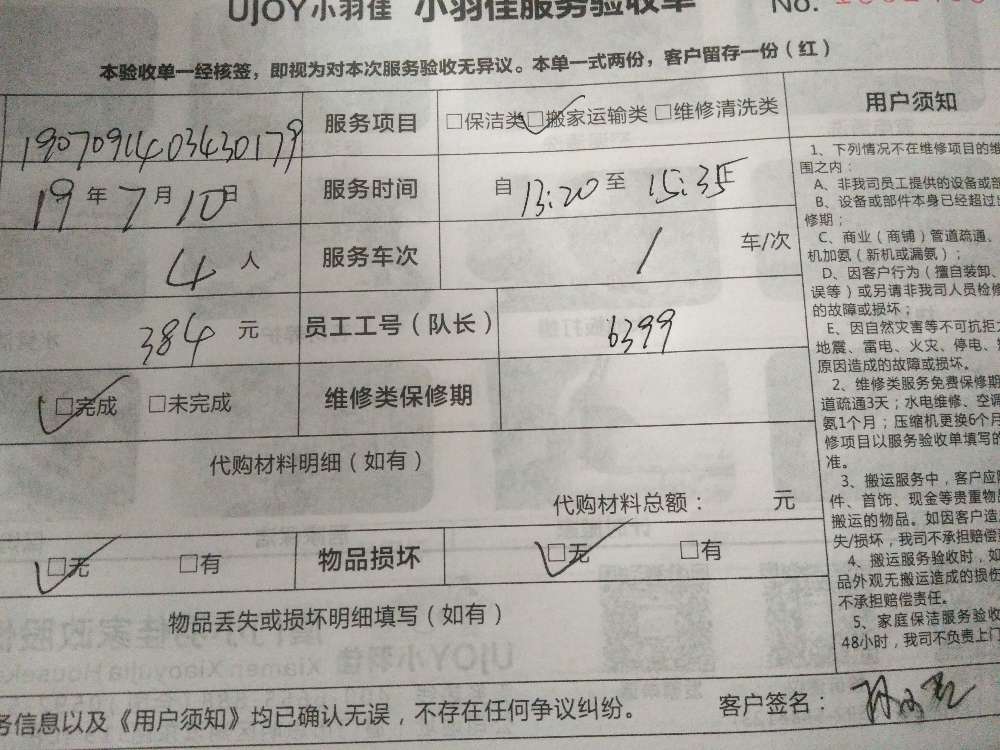 UJOY小羽佳 小羽佳服务验收单 No.
本验收单一经核签，即视为对本次服务验收无异议。本单一式两份，客户留存一份（红）
1907091403430179 服务项目 □保洁类 □搬家运输类 □维修清洗类
19年7月10日 服务时间 自 13:20 至 15:35
4人 服务车次 1 车/次
384元 员工工号（队长） 6399
□完成 □未完成 维修类保修期
代购材料明细（如有）
代购材料总额： 元
□无 □有 物品损坏 □无 □有
物品丢失或损坏明细填写（如有）
务信息以及《用户须知》均已确认无误，不存在任何争议纠纷。 客户签名：
用户须知
1、下列情况不在维修项目的维
围之内：
A、非我司员工提供的设备或部
B、设备或部件本身已经超过
修期；
C、商业（商铺）管道疏通、
机加氨（新机或漏氨）；
D、因客户行为（擅自装卸、
误等）或另请非我司人员检修
的故障或损坏；
E、因自然灾害等不可抗拒
地震、雷电、火灾、停电、
原因造成的故障或损坏。
2、维修类服务免费保修期
道疏通3天；水电维修、空调
氨1个月；压缩机更换6个月
修项目以服务验收单填写的
准。
3、搬运服务中，客户应
件、首饰、现金等贵重物
搬运的物品。如因客户造
失/损坏，我司不承担赔偿
4、搬运服务验收时，如
品外观无搬运造成的损伤
不承担赔偿责任。
5、家庭保洁服务验收
48小时，我司不负责上门